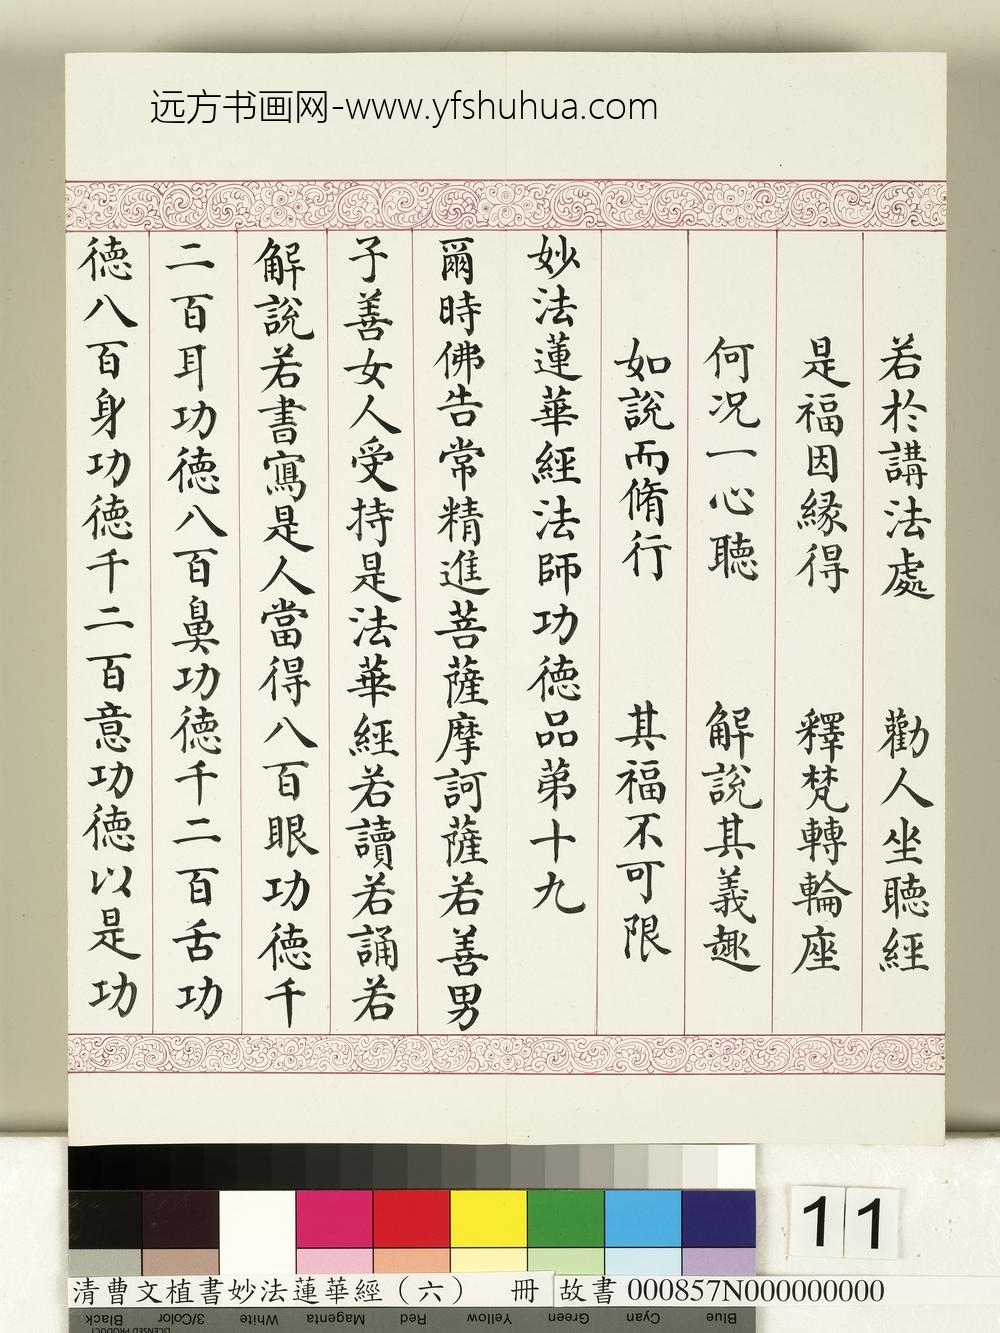 远方书画网-www.yfshuhua.com
若於講法處　勸人坐聽經
是福因緣得　釋梵轉輪座
何况一心聽　解說其義趣
如說而脩行　其福不可限
妙法蓮華經法師功德品弟十九
爾時佛告常精進菩薩摩訶薩若善男
子善女人受持是法華經若讀若誦若
解說若書寫是人當得八百眼功德千
二百耳功德八百鼻功德千二百舌功
德八百身功德千二百意功德以是功
11
清曹文植書妙法蓮華經（六）　冊　故書 000857N000000000
Black
3/Color
White
Magenta
Red
Yellow
Green
Cyan
Blue
LICENSED PRODUCT